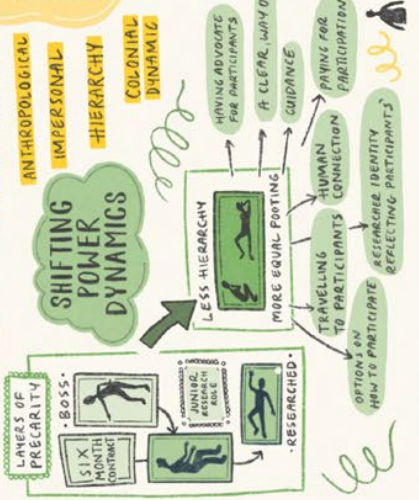 ANTHROPOLOGICAL
IMPERSONAL
HIERARCHY
COLONIAL
DYNAMIC
SHIFTING
POWER
DYNAMICS
LAYERS OF
PRECARITY
BOSS
SIX
MONTH
CONTRACT
JUNIOR
RESEARCH
ROLE
RESEARCHED
LESS HIERARCHY
MORE EQUAL FOOTING
HAVING ADVOCATE
FOR PARTICIPANTS
A CLEAR, WAY O
GUIDANCE
PAYING FOR
PARTICIPATION
HUMAN
CONNECTION
TRAVELLING
TO PARTICIPANTS
RESEARCHER IDENTITY
REFLECTING PARTICIPANTS'
OPTIONS ON
HOW TO PARTICIPATE